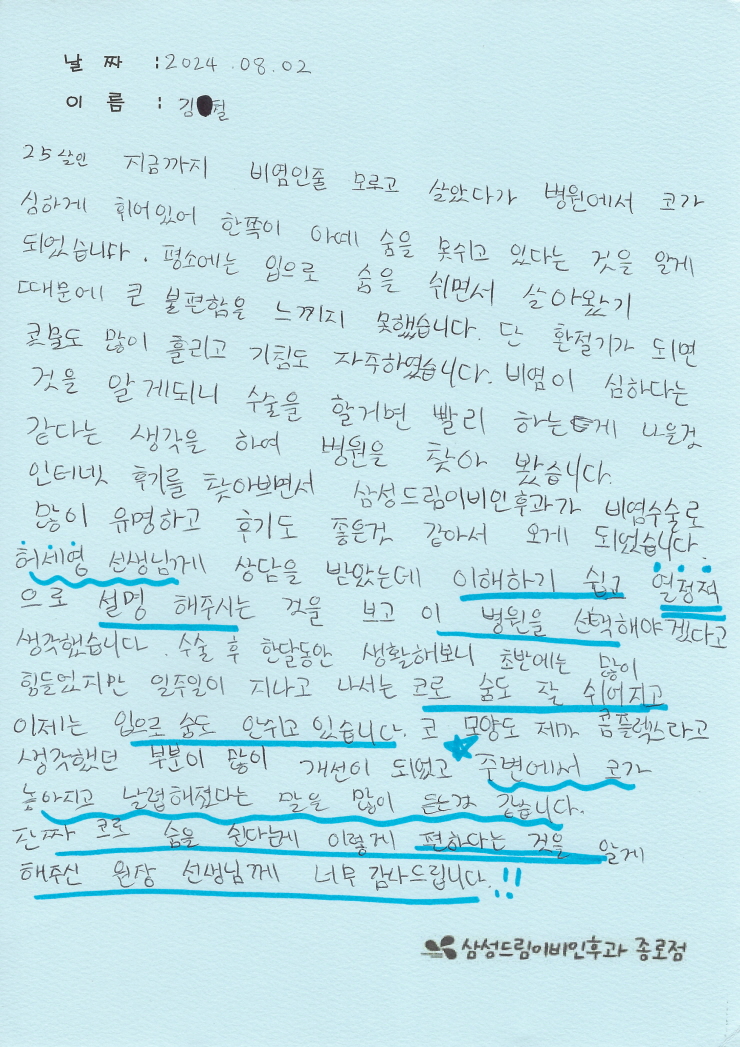 날 짜 : 2024.08.02
이 름 : 김 철
25살인 지금까지 비염인줄 모루고 살았다가 병원에서 코가
심하게 휘어있어 한쪽이 아예 숨을 못쉬고 있다는 것을 알게
되었습니다. 평소에는 입으로 숨을 쉬면서 살아왔기
때문에 큰 불편함을 느끼지 못했습니다. 단 환절기가 되면
콧물도 많이 흘리고 기침도 자주하였습니다. 비염이 심하다는
것을 알게되니 수술을 할거면 빨리 하는게 나을것
같다는 생각을 하여 병원을 찾아 봤습니다.
인터넷 후기를 찾아보면서 삼성드림이비인후과가 비염수술로
많이 유명하고 후기도 좋은것 같아서 오게 되었습니다.
허세영 선생님께 상담을 받았는데 이해하기 쉽고 열정적
으로 설명 해주시는 것을 보고 이 병원을 선택해야겠다고
생각했습니다. 수술 후 한달동안 생활해보니 초반에는 많이
힘들었지만 일주일이 지나고 나서는 코로 숨도 잘 쉬어지고
이제는 입으로 숨도 안쉬고 있습니다. 코 모양도 제가 콤플렉스라고
생각했던 부분이 많이 개선이 되었고 주변에서 코가
높아지고 날렵해졌다는 말을 많이 듣는것 같습니다.
진짜 코로 숨을 쉰다는게 이렇게 편하다는 것을 알게
해주신 원장 선생님께 너무 감사드립니다.!!
삼성드림이비인후과 종로점